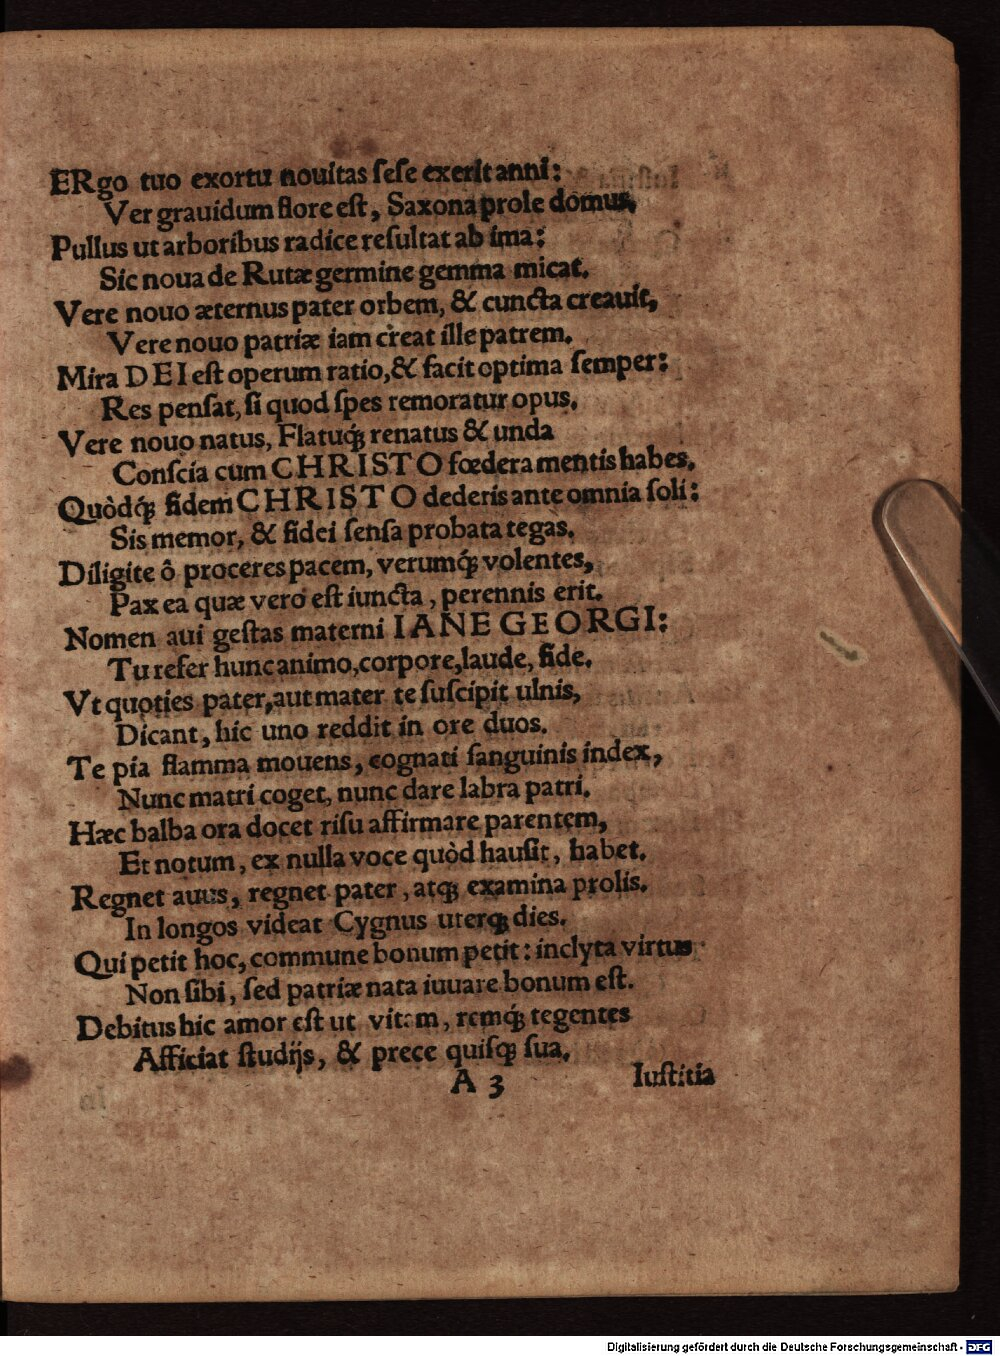 ERgo tuo exortu nouitas ſeſe exerit anni:
Ver grauidum flore eſt, Saxona prole domus,
Pullus ut arboribus radice reſultat ab ima:
Sic noua de Rutæ germine gemma micat.
Vere nouo æternus pater orbem, & cuncta creauit,
Vere nouo patriæ iam creat ille patrem.
Mira DEI eſt operum ratio, & facit optima ſemper:
Res penſat, ſi quod ſpes remoratur opus.
Vere nouo natus, Flatuq́ꝫ renatus & unda
Conſcia cum CHRISTO fœdera mentis habes.
Quòdq́ꝫ fidem CHRISTO dederis ante omnia ſoli:
Sis memor, & fidei ſenſa probata tegas.
Diligite ô proceres pacem, verumq́ꝫ volentes,
Pax ea quæ vero eſt iuncta, perennis erit.
Nomen aui geſtas materni IANE GEORGI:
Tu refer hunc animo, corpore, laude, fide.
Vt quoties pater, aut mater te ſuſcipit ulnis,
Dicant, hic uno reddit in ore duos.
Te pia flamma mouens, cognati ſanguinis index,
Nunc matri coget, nunc dare labra patri.
Hæc balba ora docet riſu affirmare parentem,
Et notum, ex nulla voce quòd hauſit, habet.
Regnet auus, regnet pater, atqꝫ examina prolis.
In longos videat Cygnus uterqꝫ dies.
Qui petit hoc, commune bonum petit: inclyta virtus
Non ſibi, ſed patriæ nata iuuare bonum eſt.
Debitus hic amor eſt ut vitam, remq́ꝫ tegentes
Afficiat ſtudijs, & prece quiſqꝫ ſua.
A 3 Iuſtitia
Digitalisierung gefördert durch die Deutsche Forschungsgemeinschaft - DFG